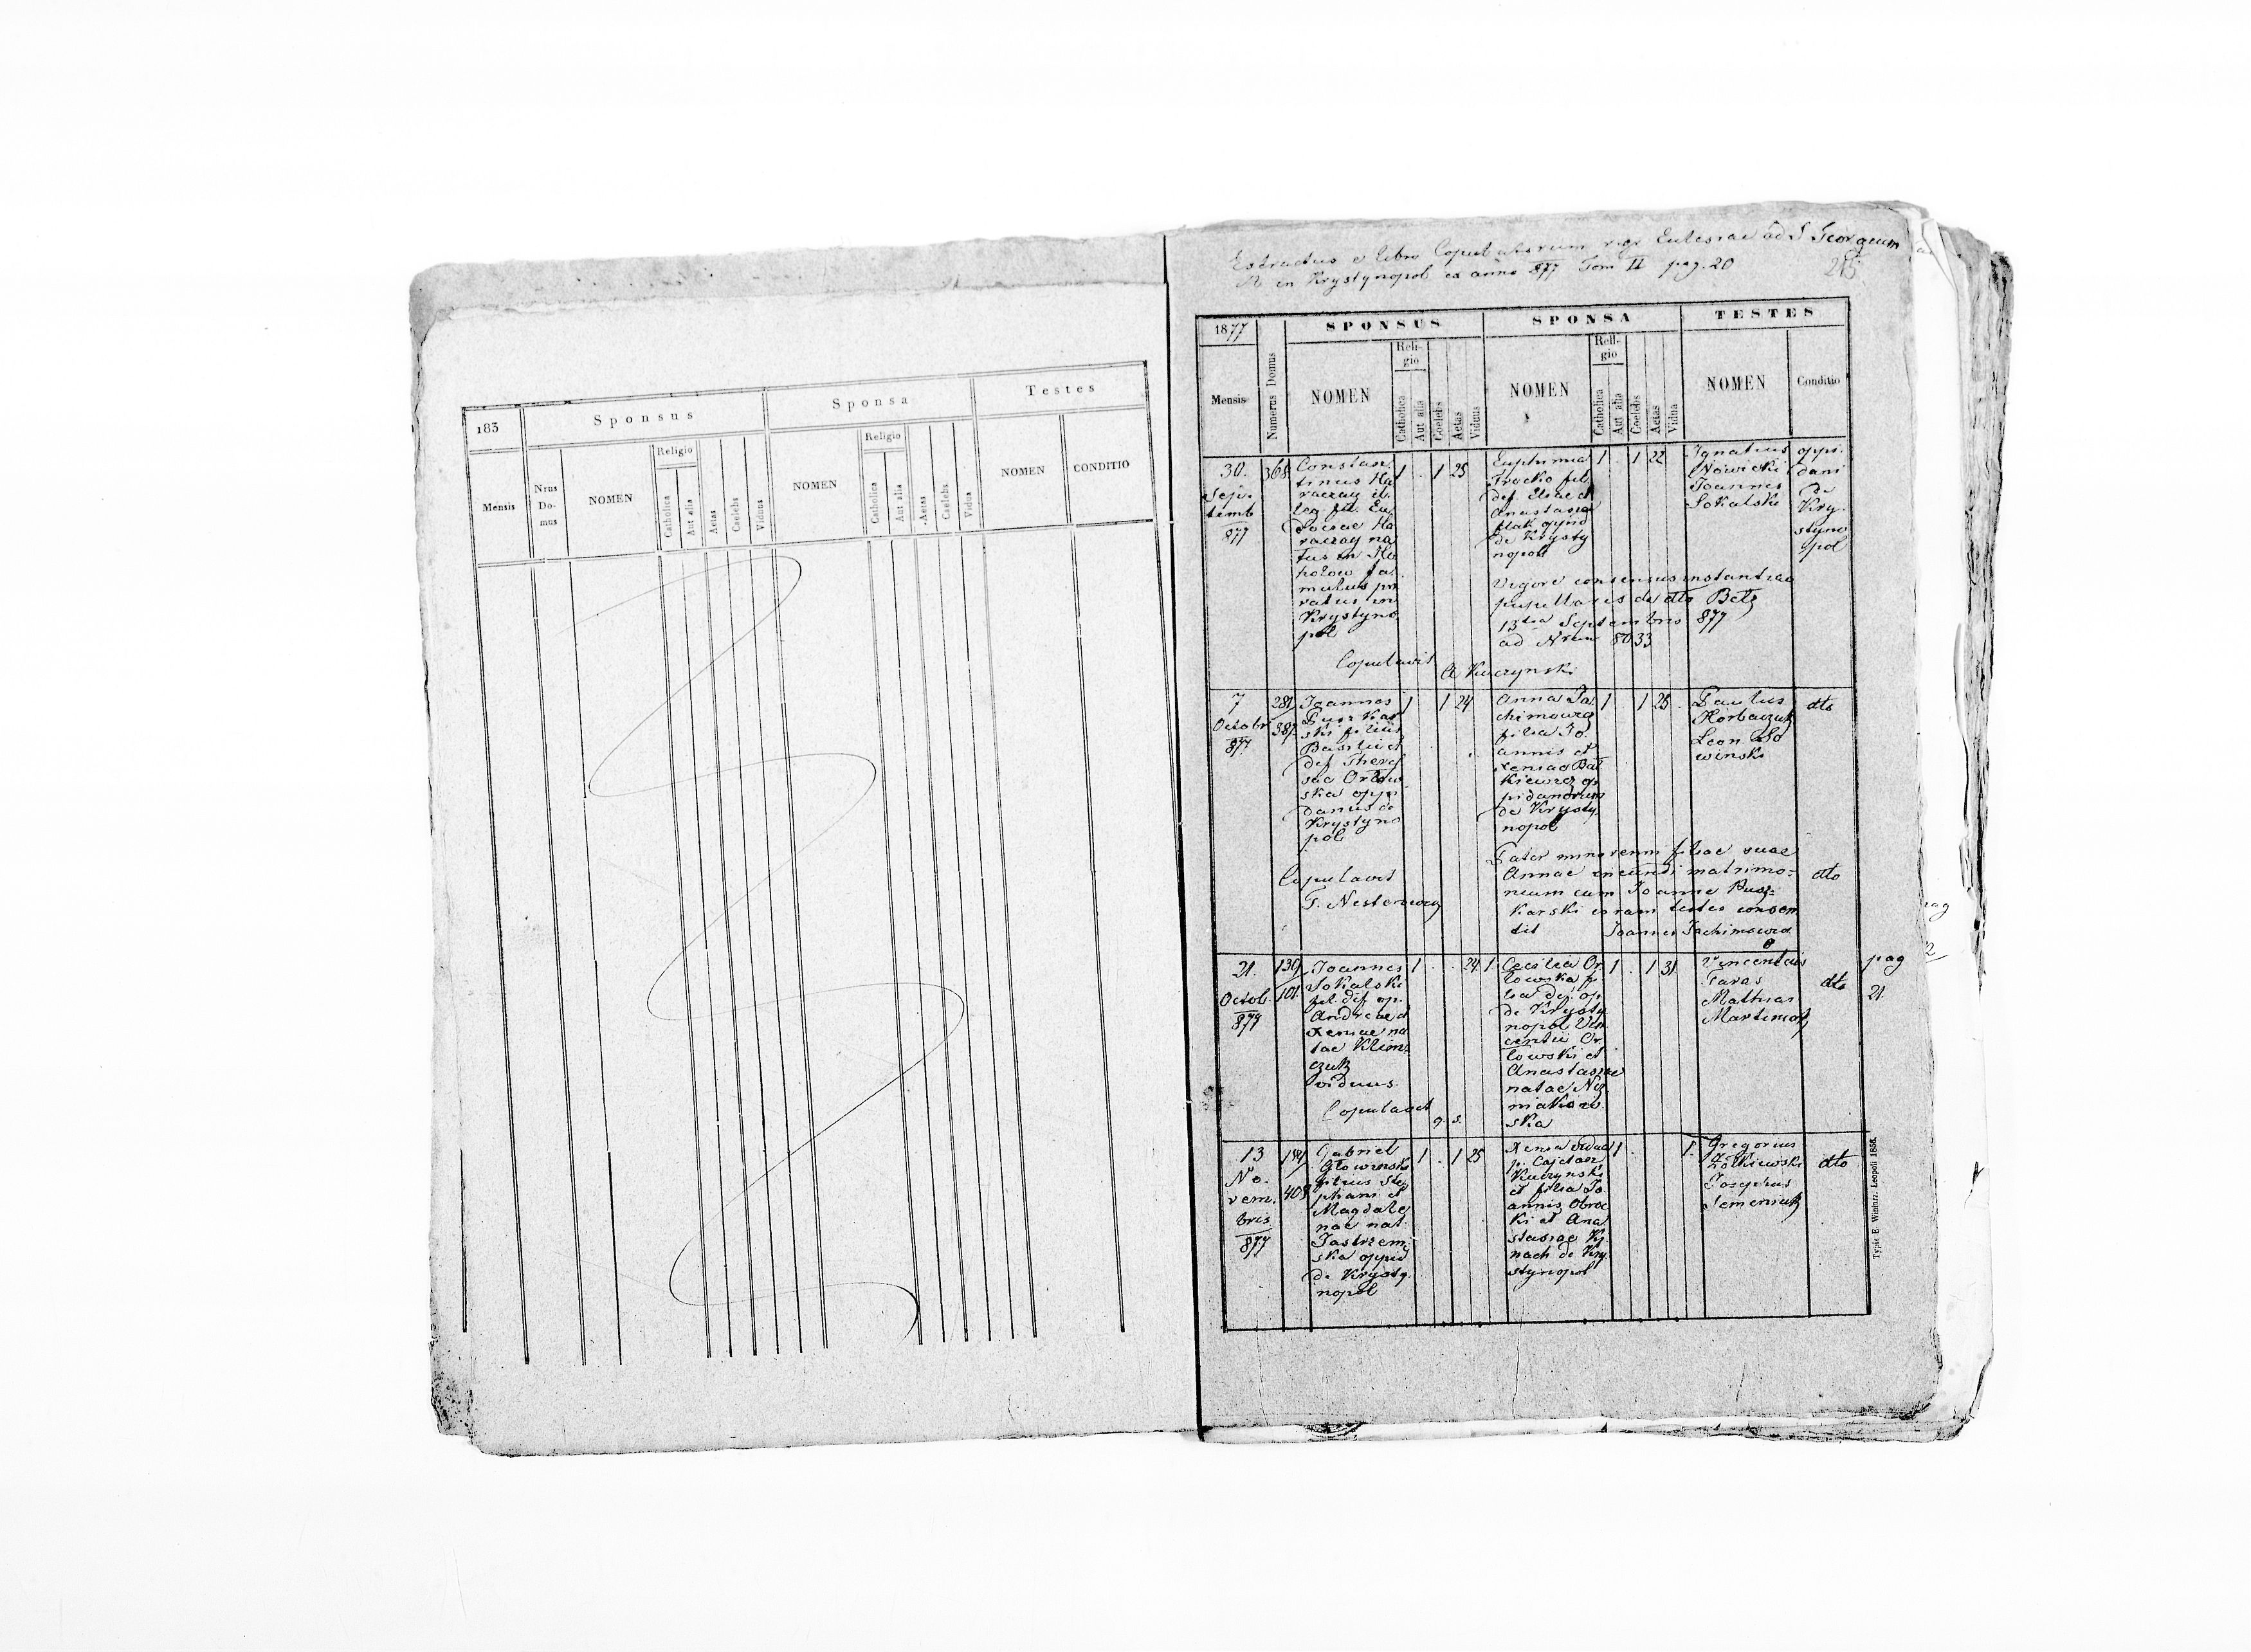 183
Sponsus
Sponsa
Testes
Mensis
Nrus Do- mus
NOMEN
Religio
Catholica
Aut alia
Aetas
Caelebs
Viduus
NOMEN
Religio
Catholica
Aut alia
Aetas
Caelebs
Vidua
NOMEN
CONDITIO
Extractus e libro Copulatorum r. gr. Eclesiae ad S Georgeum
M in Krystynopol ex anno 877 Tom II pag. 20
215
1877
SPONSUS
SPONSA
TESTES
Mensis
Numerus Domus
NOMEN
Reli-
gio
Catholica
Aut alia
Coelebs
Aetas
Viduus
NOMEN
Reli-
gio
Catholica
Aut alia
Coelebs
Aetas
Vidua
NOMEN
Conditio
30.
Sep-
temb
877
368
Constan
tinus Ha
raczay il.
leg fil. Eu
dociae Ha
raczay na
tus in
famulus pri
vatus in
Krystyno
pol
1 . 1 25
Euphimia
Trocko fil.
def. Eliae et
Anastasia
de Krysty
nopol
1 1 22
Ignatius
Nowicki
Joannes
Sokalski
oppi.
dani
de
Kry-
styno
pol
Vigore consensus instantiae
pupillaris de dto Betz
13tia Septembris 877
ad Nrum 8033
Copulavit
A Kuczynski
7
Octobr
877
281
387
Joannes
Puszkar
ski filius
Basilii et
def There
siae Orlow
ska oppi
danus de
Krystyno
pol
1 1 24
Anna Ja
chimowicz
filia Jo
annis et
Xeniae Bal
kiewicz op
pidanorum
de Krysty
nopol
1 1 23
Paulus
Horbaczuk
Leon
winski
dto
Copulavit
T. Nesterowicz
Pater minorenni filiae suae
Annae ineundi matrimo-
nium cum Joanne Pusz-
karski coram testes consen
tit Joannes Jachimowicz
dto
21.
Octob.
877
139
101
Joannes
Sokalski
fil def op.
Andreae et
Xeniae na
tae Klim
czuk
viduus
1 . . 24 1
Cecilia Or
lowska fi
lia def. op.
de Krysty
nopol Vin
centii Or
lowski et
Anastasiae
natae
ska
1 . 1 31
Vincentius
Taras
Mathias
dto
pag
21.
Copulavit
q. s.
13
No-
vem.
bris
877
408
Gabriel
Glowinski
filius Ste
phani et
Magdale
nae nat.
Jastrzem
ska oppid
de Krysty
nopol
1 . 1 25
Xenia vidua
p. Cajetan
Kuczynski
et filia Jo
annis Obroc
ki et Ana
stasiae
nach de Kry
stynopol
1 . 1.
Gregorius
Zolkiewski
Josephus
Semeniuk
dto
Typis E. Winiarz. Leopoli 1856.